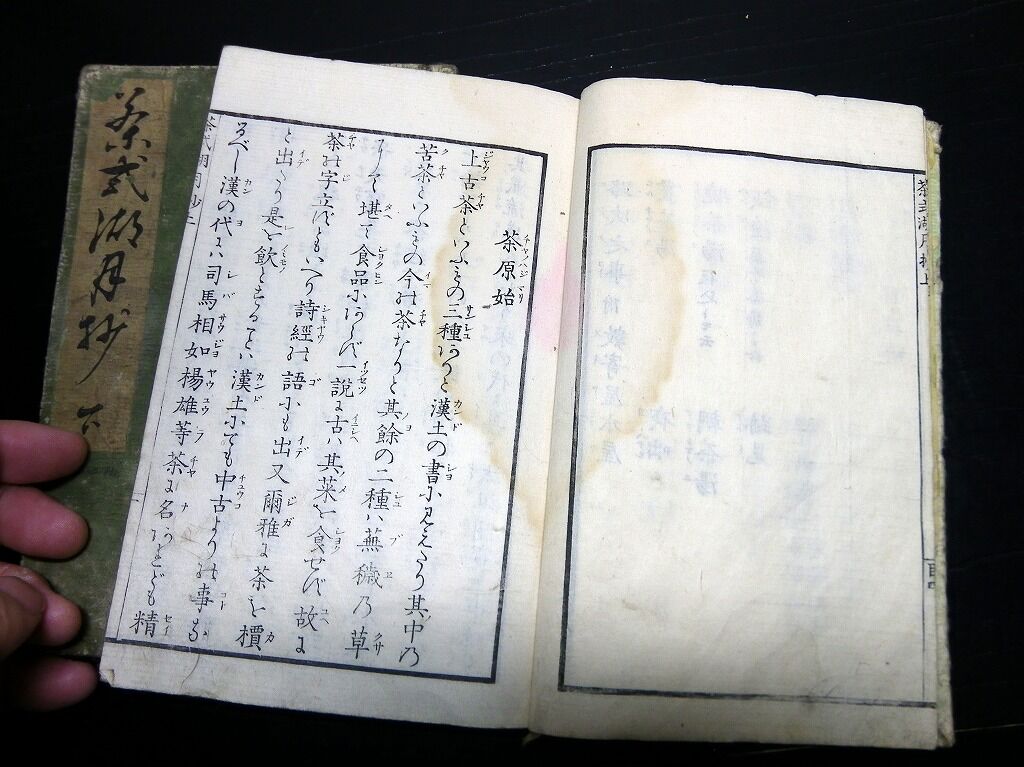 茶式湖月抄上
目四
茶原始
上古茶といふもの三種ありと漢土の書に見えたり其中乃
苦茶といふもの今の茶なりと其餘の二種ハ蕪穢乃草
にして堪て食品にあらず一説に古ハ其菜を食せず故に
茶の字立ずともいへり詩經の語にも出又爾雅に茶を檟
と出たり是を飲とすることハ漢土にても中古よりの事な
るべし漢の代にハ司馬相如楊雄等茶に名あれども精
茶式湖月抄上
一
茶式湖月抄 下